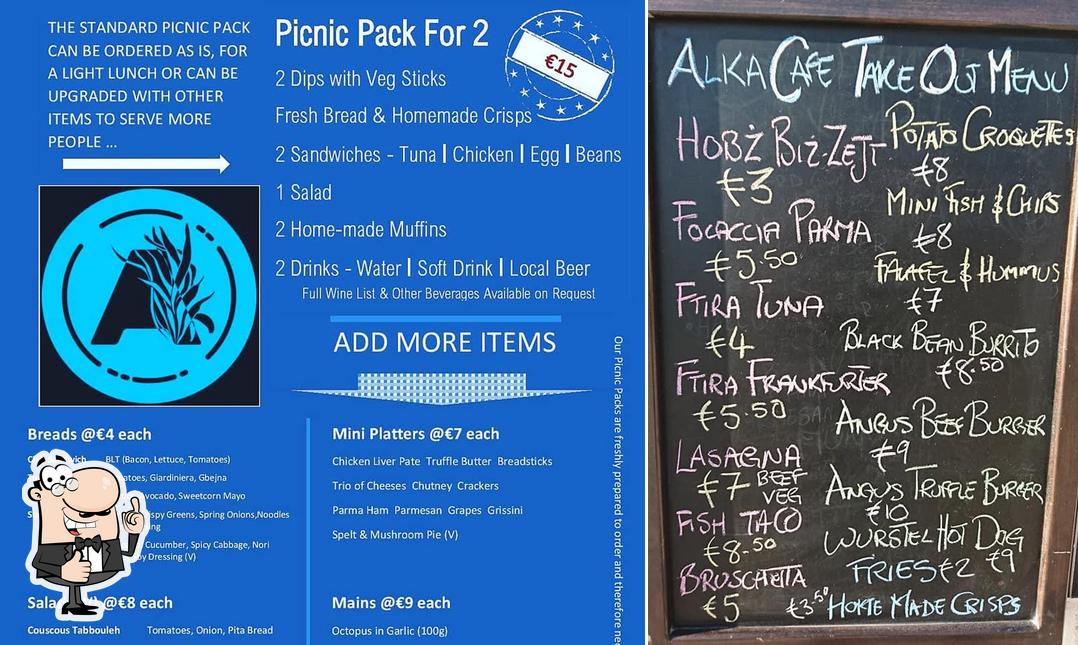 THE STANDARD PICNIC PACK
CAN BE ORDERED AS IS, FOR
A LIGHT LUNCH OR CAN BE
UPGRADED WITH OTHER
ITEMS TO SERVE MORE
PEOPLE ...
Picnic Pack For 2
€15
2 Dips with Veg Sticks
Fresh Bread & Homemade Crisps
2 Sandwiches - Tuna | Chicken | Egg | Beans
1 Salad
2 Home-made Muffins
2 Drinks - Water | Soft Drink | Local Beer
Full Wine List & Other Beverages Available on Request
ADD MORE ITEMS
Our Picnic Packs are freshly prepared to order and therefore
Breads @€4 each
BLT (Bacon, Lettuce, Tomatoes)
Giardiniera, Gbejna
Sweetcorn Mayo
Greens, Spring Onions,Noodles
Cucumber, Spicy Cabbage, Nori
Dressing (V)
@€8 each
Couscous Tabbouleh Tomatoes, Onion, Pita Bread
Mini Platters @€7 each
Chicken Liver Pate Truffle Butter Breadsticks
Trio of Cheeses Chutney Crackers
Parma Ham Parmesan Grapes Grissini
Spelt & Mushroom Pie (V)
Mains @€9 each
Octopus in Garlic (100g)
ALKA CAFE TAKE OUT MENU
HOBŻ BIŻ-ZEJT
€3
FOCACCIA PARMA
€5.50
FTIRA TUNA
€4
FTIRA FRANKFURTER
€5.50
LASAGNA
€7 BEEF
VEG
FISH TACO
€8.50
BRUSCHETTA
€5
POTATO CROQUETTES
€8
MINI FISH & CHIPS
€8
FALAFEL & HUMMUS
€7
BLACK BEAN BURRITO
€8.50
ANGUS BEEF BURGER
€9
ANGUS TRUFFLE BURGER
€10
WURSTEL HOT DOG
€9
FRIES €2
€3.50 HOME MADE CRISPS